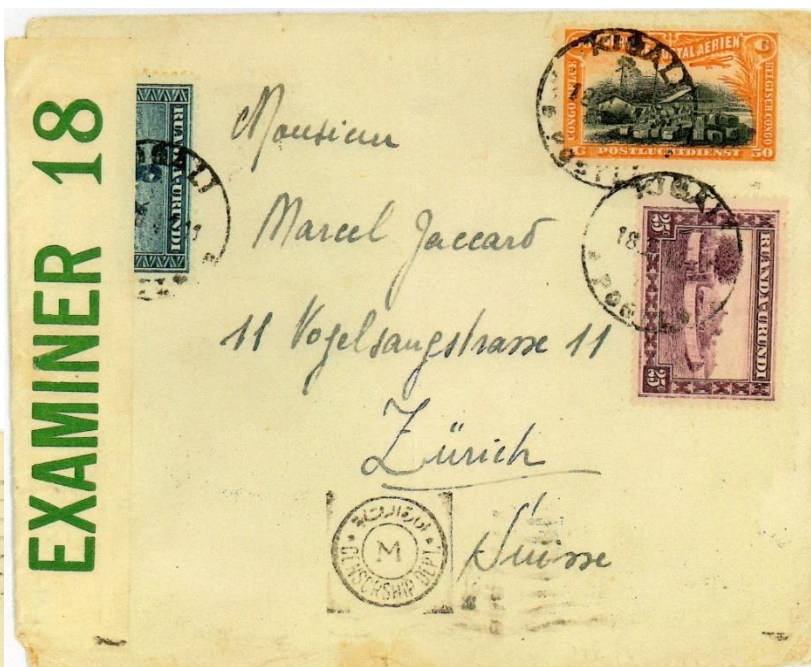 EXAMINER 18
RUANDA-URUNDI
KIGALI
POSTAL AERIEN
CONGO BELGE
BELGISCH CONGO
C POSTLUCHTDIENST 50
KIGALI
18
RUANDA-URUNDI
25c
25c
KIGALI
18
Monsieur
Marcel Jaccard
11 Vogelsangstrasse 11
Zürich
Suisse
ادارة الرقابة
M
CENSORSHIP DEPT.